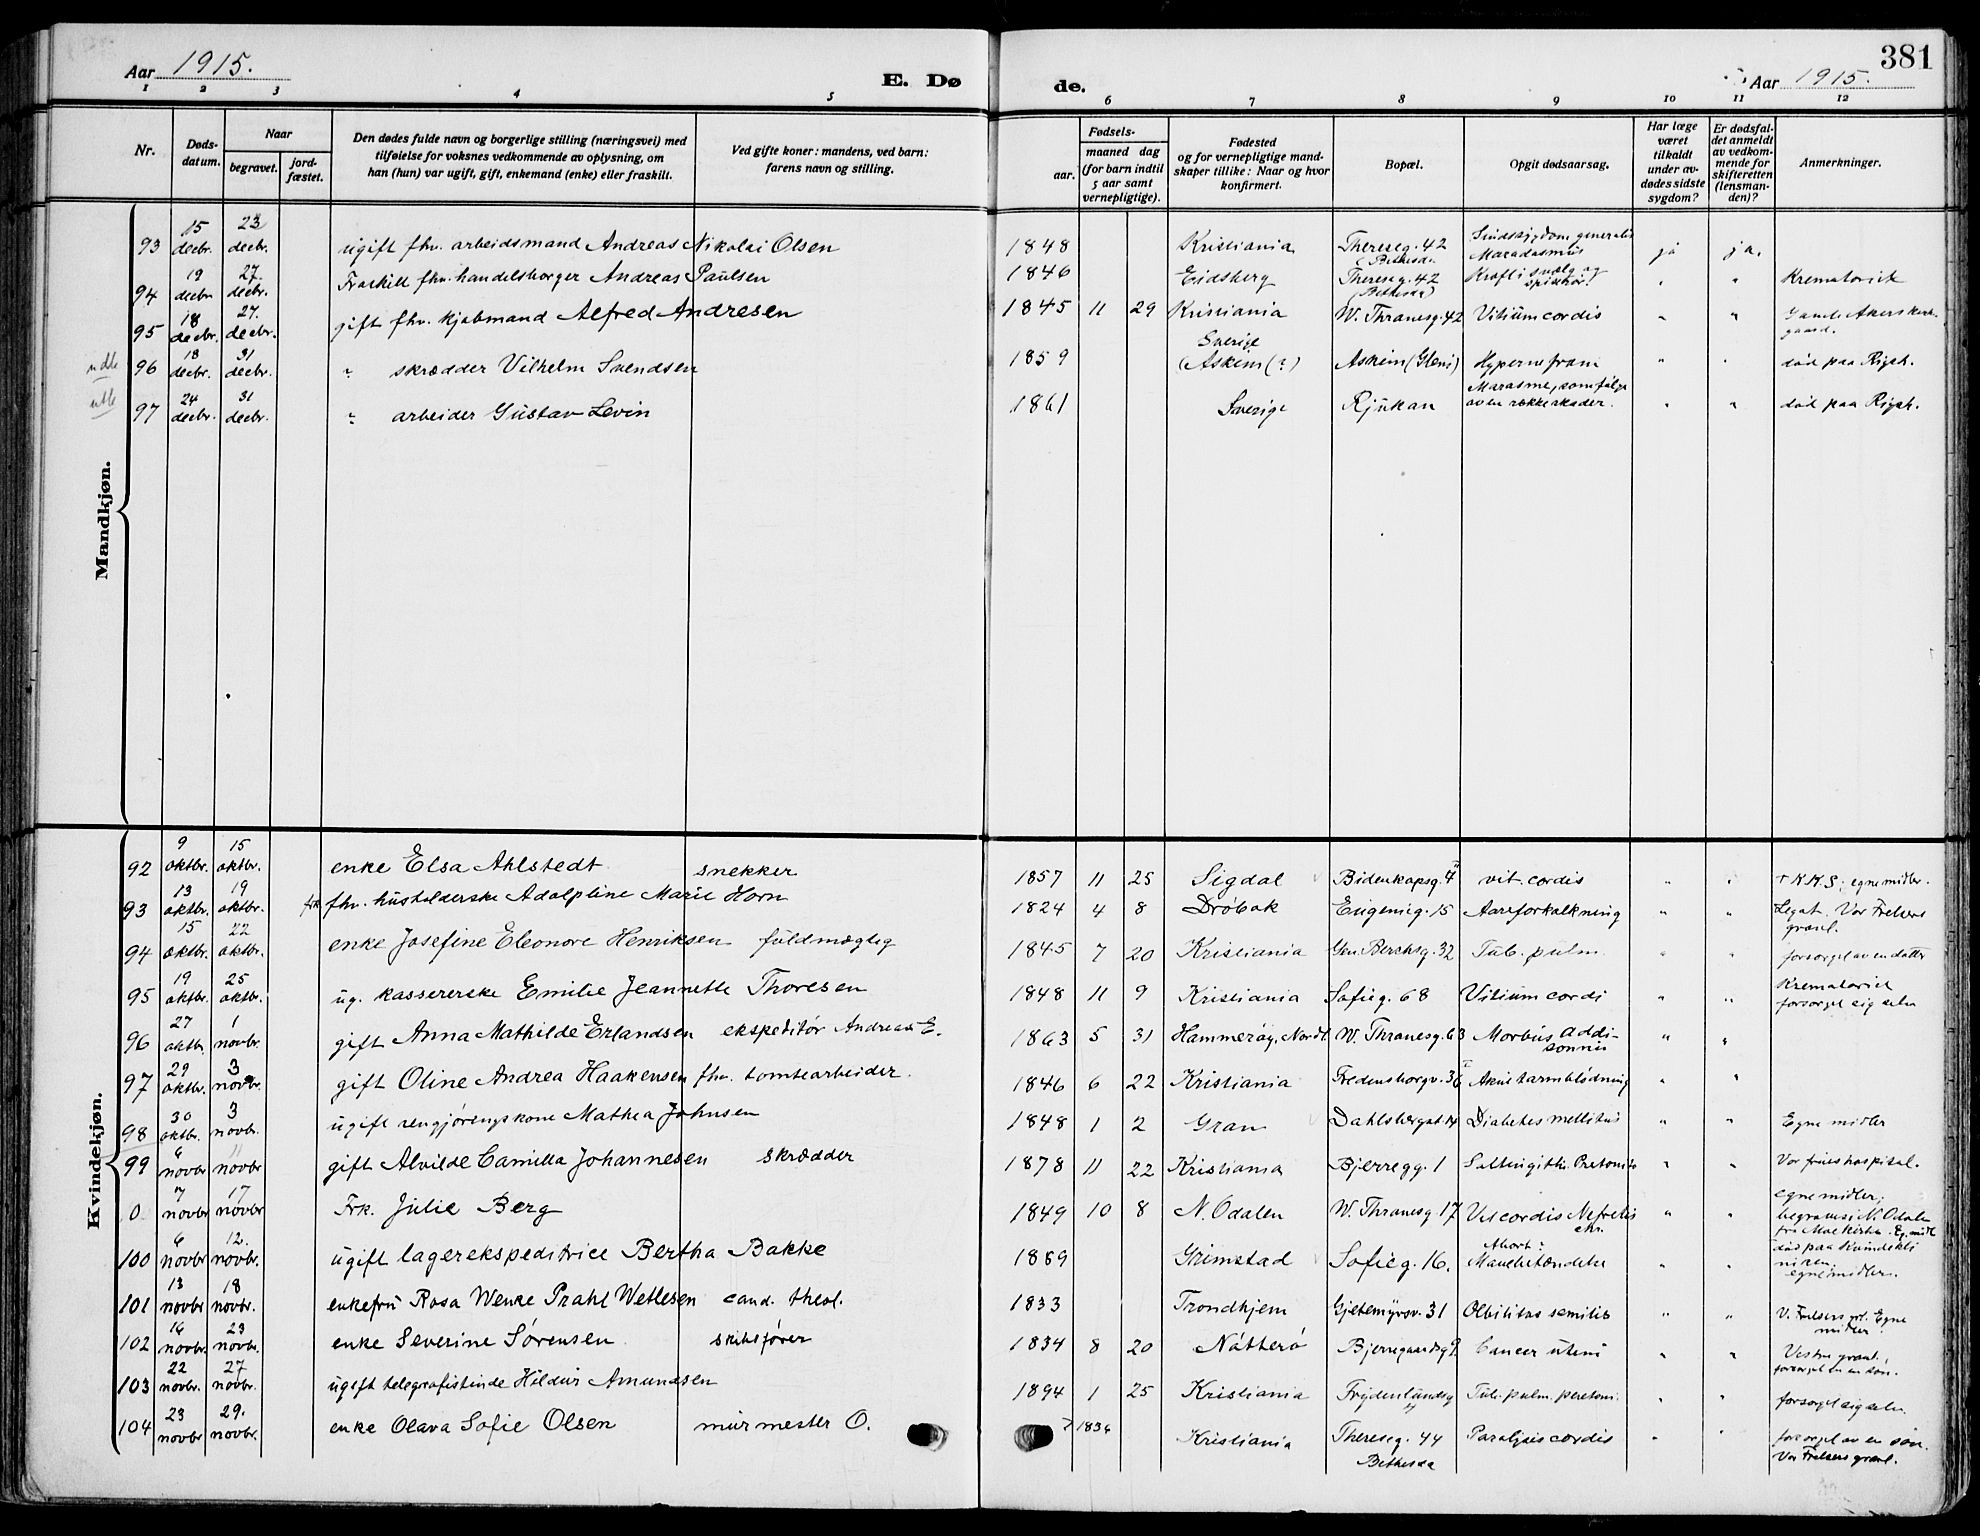 Aar 1915.
E. Dø
de.
Aar 1915.
381
1 2 3 4 5 6 7 8 9 10 11 12
Nr.
Døds-
datum.
Naar
begravet.
jord-
fæstet.
Den dødes fulde navn og borgerlige stilling (næringsvei) med
tilføielse for voksnes vedkommende av oplysning, om
han (hun) var ugift, gift, enkemand (enke) eller fraskilt.
Ved gifte koner: mandens, ved barn:
farens navn og stilling.
Fødsels-
aar.
maaned dag
(for barn indtil
5 aar samt
vernepligtige).
Fødested
og for vernepligtige mand-
skaper tillike: Naar og hvor
konfirmert.
Bopæl.
Opgit dødsaarsag.
Har læge
været
tilkaldt
under av-
dødes sidste
sygdom?
Er dødsfal-
det anmeldt
av vedkom-
mende for
skifteretten
(lensman-
den)?
Anmerkninger.
Mandkjøn.
93 15 decbr. 23 decbr. ugift fhv. arbeidsmand Andreas Nikolai Olsen 1848 Kristiania Thereseg. 42 (Bethesda ja ja.
94 19 decbr 27. decbr. Fraskilt fhv. handelsborger Andreas Paulsen 1846 Eidsberg Thereseg. 42 (Bethesda) Kræft i svælg og spiserør. " " Krematoriet
95 18 decbr. 27. decbr. gift fhv. kjøbmand Alfred Andresen 1845 11 29 Kristiania W. Thranesg. 42 Vitium cordis " " Gamle Akers kirke-
gaard.
96 18 decbr. 31 decbr. " skrædder Vilhelm Svendsen 1859 Sverige (Askim (?) Askim " " død paa Rigsh.
97 24 decbr. 31 decbr. " arbeider Gustav Levin 1861 Sverige Rjukan Marasme, som følge
av en række skader. " " død paa Rigsh.
Kvindekjøn.
92 9 oktbr. 15 oktbr. enke Elsa Ahlstedt snekker 1857 11 25 Sigdal Bidenkapsg. 4 II vit. cordis " " egne midler.
93 13 oktbr. 19 oktbr. frk fhv. husholderske Adolphine Marie Horn 1824 4 8 Drøbak Eugenieg. 15 Aareforkalkning " " Legat. Vor Frelsers
gravl.
94 15 oktbr. 22 oktbr. enke Josefine Eleonore Henriksen fuldmægtig 1845 7 20 Kristiania Gen. Berchsg. 32 Tub. pulm. " " forsørget av en datter
95 19 oktbr. 25 oktbr. ug. kassererske Emilie Jeannette Thoresen 1848 11 9 Kristiania Sofieg. 68 Vitium cordi " " Krematoriet
forsørget sig selv
96 27 oktbr. 1 novbr. gift Anna Mathilde Erlandsen ekspeditør Andreas E. 1863 5 31 Hammerøy, Nordl. W. Thranesg. 63 Morbus Addi-
sonnii " "
97 29 oktbr. 3 novbr. gift Oline Andrea Haakensen fhv. tomtearbeider. 1846 6 22 Kristiania Fredensborgv. 36 II Akut tarmblødning " "
98 30 oktbr. 3 novbr. ugift rengjøringskone Mathea Johnsen 1848 1 2 Gran Dahlsbergst. 14 Diabetes mellitus " " Egne midler
99 6 novbr 11 novbr gift Alvilde Camilla Johannesen skrædder 1878 11 22 Kristiania Bjerregg. 1 " " Vor frues hospital.
0 7 novbr 17 novbr Frk. Julie Berg 1849 10 8 N. Odalen W. Thranesg. 17 Vit cordis Nefritis
chr. " " egne midler;
begravesi N. Odalen
fra Moe kirke.
100 6 novbr 12. novbr. ugift lagerekspeditrice Bertha Bakke 1889 Grimstad Sofieg. 16. Abort? " " død paa Kvindekli
niken.
egne midler.
101 13 novbr 18 novbr. enkefru Rosa Wenke Prahl Wetlesen cand. theol. 1833 Trondhjem Gjetemyrsv. 31 " " V. Frelsers grl. Egne
midler.
102 16 novbr. 23 novbr. enke Severine Sørensen skibsfører 1834 8 20 Nøtterø Bjerregaardsg 9. Cancer uteri " " Vestre gravl.
forsørget av en søn.
103 22 novbr. 27 novbr. ugift telegrafistinde Hildur Amundsen 1894 1 25 Kristiania Frydenlundsg Tub. pulm. peritoni. " " forsørget sig selv.
104 23 novbr 29. novbr. enke Olava Sofie Olsen murmester O. ? 1836 Kristiania Thereseg. 44
Bethesda Paralysis cordis " " forsørget av en søn.
Vor Frelsers gravl.